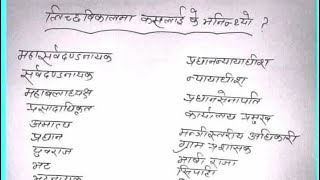 लिच्छविकालमा कसलाई के भनिन्थ्यो ?
महासर्वदण्डनायक प्रधानन्यायाधीश
सर्वदण्डनायक न्यायाधीश
महाबलाध्यक्ष प्रधानसेनापति
प्रसादाधिकृत कार्यालय प्रमुख
अमात्य मन्त्रीस्तरीय अधिकारी
प्रधान ग्राम प्रशासक
युवराज भावी राजा
भट सिपाही